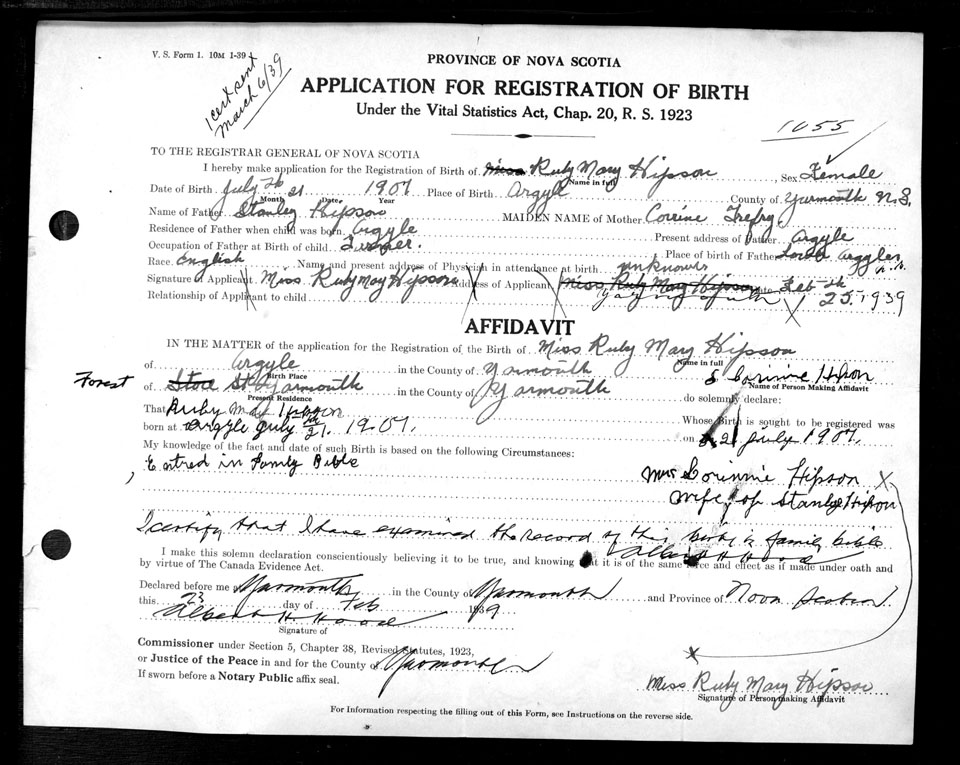 V. S. Form 1. 10M 1-39
1 cert sent
March 6/39
PROVINCE OF NOVA SCOTIA
APPLICATION FOR REGISTRATION OF BIRTH
Under the Vital Statistics Act, Chap. 20, R. S. 1923
1055
TO THE REGISTRAR GENERAL OF NOVA SCOTIA
I hereby make application for the Registration of Birth of Miss Ruby Mary Hipson, Sex Female
Name in full
Date of Birth July 21 1907 Place of Birth Argyle County of Yarmouth N.S.
Month Date Year
Name of Father Stanley Hipson MAIDEN NAME of Mother Corrine Trefry
Residence of Father when child was born Argyle Present address of Father Argyle
Occupation of Father at Birth of child Place of birth of Father Lower Argyle N.S.
Race English Name and present address of Physician in attendance at birth unknown
Signature of Applicant Miss Ruby May Hipson Address of Applicant Miss Ruby May Hipson Date Feb
Relationship of Applicant to child Yarmouth 25, 1939
AFFIDAVIT
IN THE MATTER of the application for the Registration of the Birth of Miss Ruby Mary Hipson
Name in full
of Argyle in the County of Yarmouth I, Corinne Hipson
Birth Place Name of Person Making Affidavit
Forest
of St Yarmouth in the County of Yarmouth do solemnly declare:
Present Residence
That Ruby May Hipson Whose Birth is sought to be registered was
born at Argyle July 21. 1907. on 21 July 1907.
My knowledge of the fact and date of such Birth is based on the following Circumstances:
Entred in Family Bible
Mrs Corinnie Hipson X
wife of Stanley Hipson
I certify that I have examined the record of this birth in family bible
Albert H Hood
I make this solemn declaration conscientiously believing it to be true, and knowing that it is of the same force and effect as if made under oath and
by virtue of The Canada Evidence Act.
Declared before me at Yarmouth in the County of Yarmouth and Province of Nova Scotia
this 23 day of Feb 1939
Albert H. Hood
Signature of
Commissioner under Section 5, Chapter 38, Revised Statutes, 1923,
or Justice of the Peace in and for the County of Yarmouth
If sworn before a Notary Public affix seal.
X
Miss Ruby Mary Hipson
Signature of Person making Affidavit
For Information respecting the filling out of this Form, see Instructions on the reverse side.